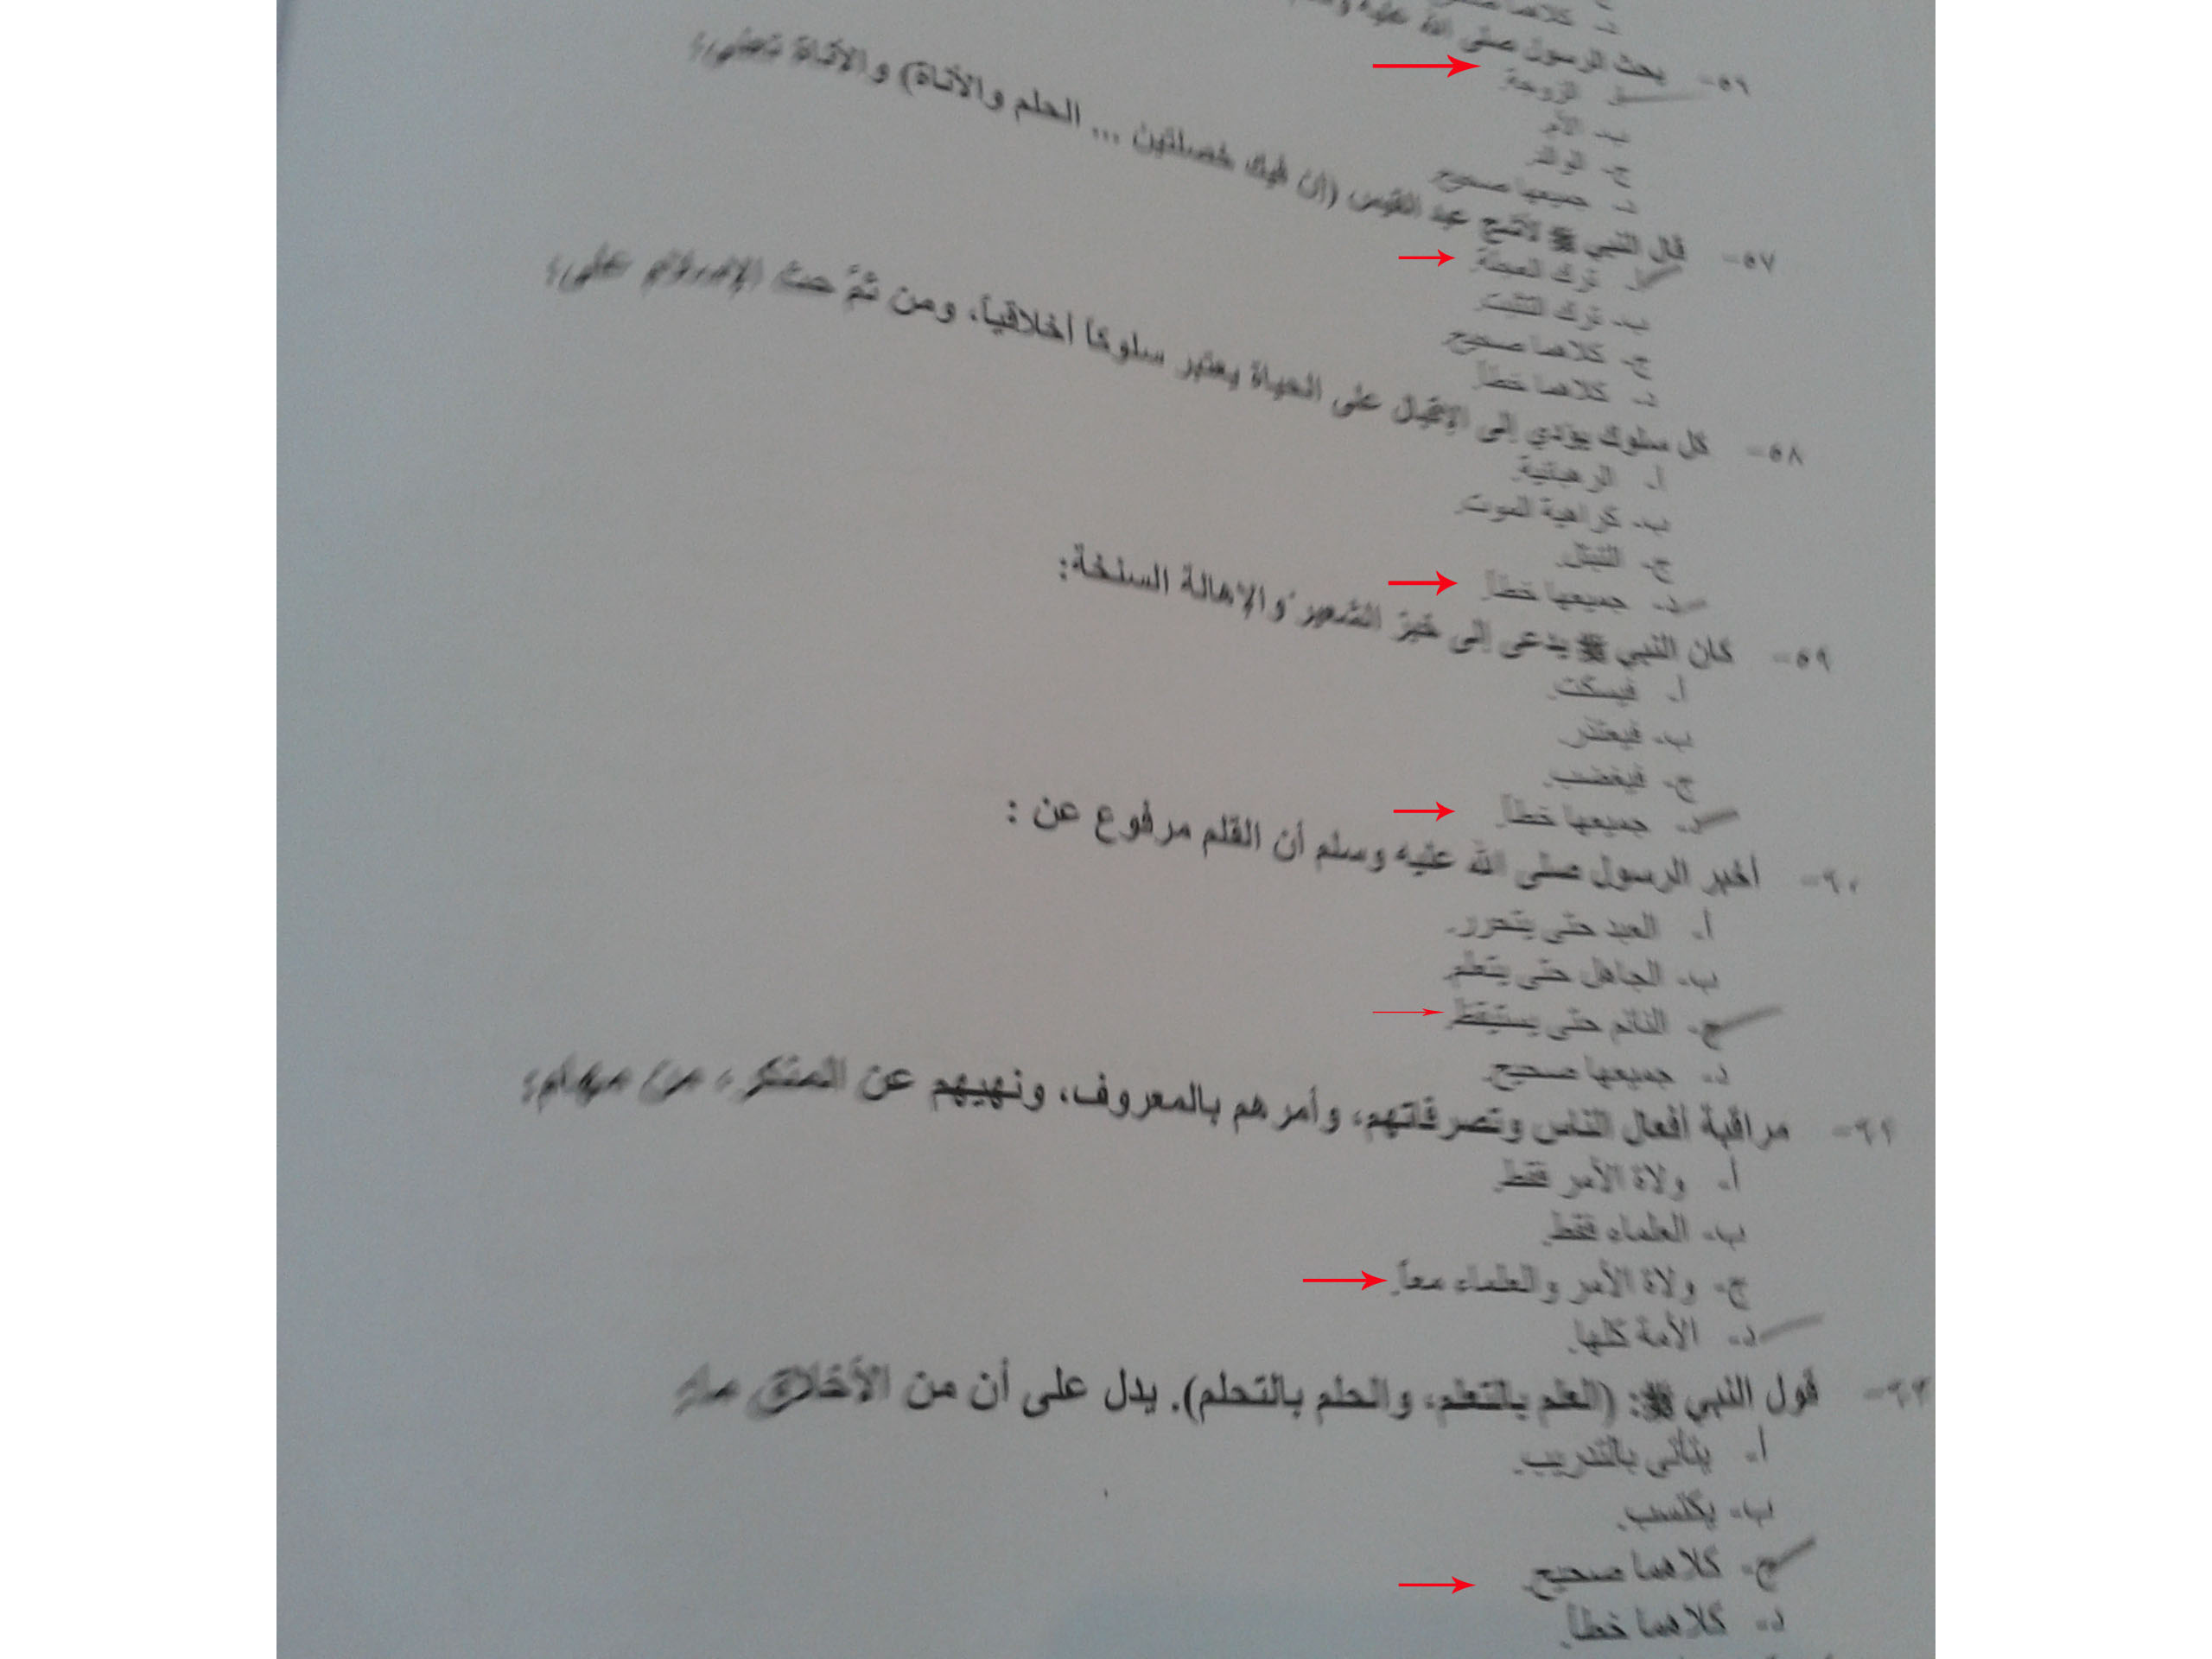 د- كلاهما
٥٦- بحث الرسول صلى الله عليه
أ- الزوجة.
ب- الأم.
ج- الوالد.
د- جميعها صحيح.
٥٧- قال النبي ﷺ لأشج عبد القيس (أن فيك خصلتين ... الحلم والأناة) والأناة تعني:
أ- ترك العجلة.
ب- ترك التثبت.
ج- كلاهما صحيح.
د- كلاهما خطأ.
٥٨- كل سلوك يؤدي إلى الإقبال على الحياة يعتبر سلوكاً أخلاقياً، ومن ثمَّ حث الإسلام على:
أ- الرهبانية.
ب- كراهية الموت.
ج- التبتل.
د- جميعها خطأ.
٥٩- كان النبي ﷺ يدعى إلى خبز الشعير والإهالة السنخة:
أ- فيسكت.
ب- فيعتذر.
ج- فيغضب.
د- جميعها خطأ.
٦٠- أخبر الرسول صلى الله عليه وسلم أن القلم مرفوع عن :
أ- العبد حتى يتحرر.
ب- الجاهل حتى يتعلم.
ج- النائم حتى يستيقظ.
د- جميعها صحيح.
٦١- مراقبة أفعال الناس وتصرفاتهم، وأمرهم بالمعروف، ونهيهم عن المنكر، من مهام:
أ- ولاة الأمر فقط.
ب- العلماء فقط.
ج- ولاة الأمر والعلماء معاً.
د- الأمة كلها.
٦٢- قول النبي ﷺ: (العلم بالتعلم، والحلم بالتحلم). يدل على أن من الأخلاق ما:
أ- يتأتى بالتدريب.
ب- يكتسب.
ج- كلاهما صحيح.
د- كلاهما خطأ.